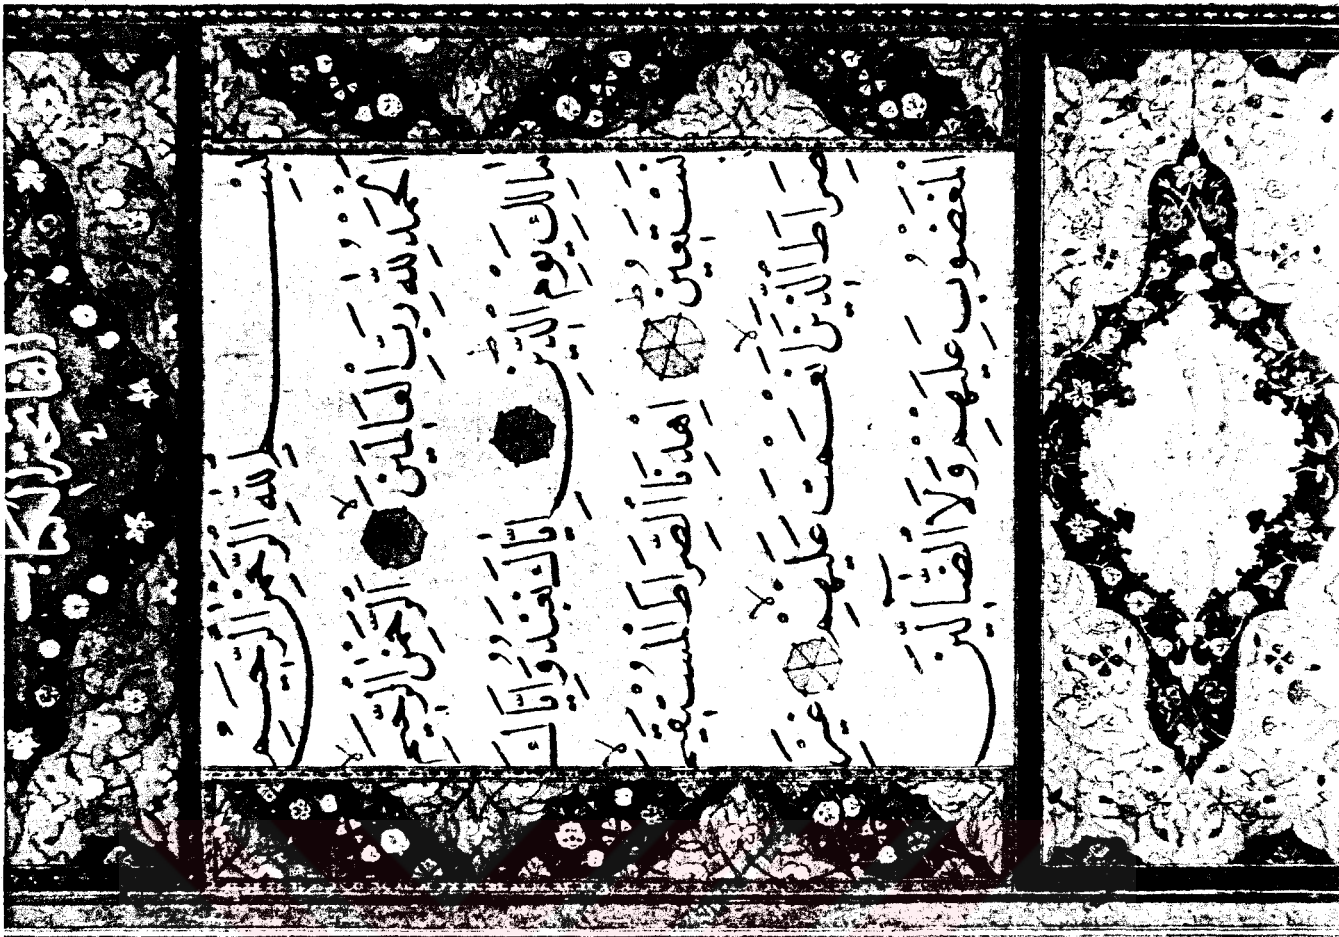 بِسْمِ اللَّهِ الرَّحْمٰنِ الرَّحِيمِ
اَلْحَمْدُ لِلَّهِ رَبِّ الْعَالَمِينَ لا اَلرَّحْمٰنِ الرَّحِيمِ لا
مَالِكِ يَوْمِ الدِّينِ ط اِيَّاكَ نَعْبُدُ وَاِيَّاكَ
نَسْتَعِينُ ط اِهْدِنَا الصِّرَاطَ الْمُسْتَقِيمَ لا
صِرَاطَ الَّذِينَ اَنْعَمْتَ عَلَيْهِمْ لا غَيْرِ
الْمَغْضُوبِ عَلَيْهِمْ وَلَا الضَّالِّينَ